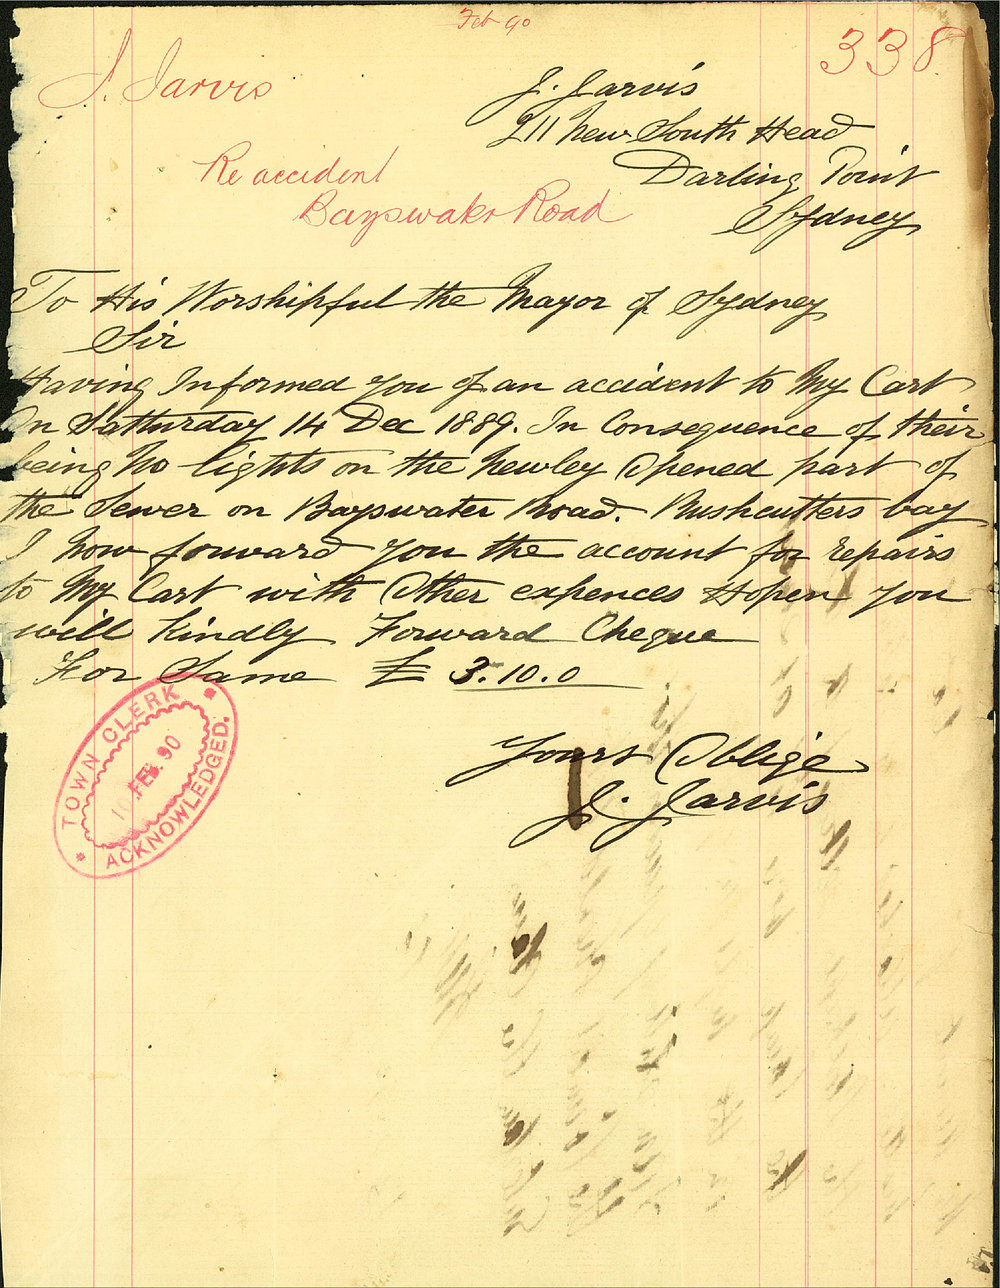 Feb 90
338
J. Jarvis
J. Jarvis
211 New South Head
Darling Point
Sydney
Re accident
Bayswater Road
To His Worshipful the Mayor of Sydney
Sir
Having Informed you of an accident to My Cart
On Satturday 14 Dec 1889. In Consequence of their
being No lights on the Newley Opened part of
the Sewer on Bayswater Road. Rushcutters bay
I Now forward you the account for repairs
to My Cart with Other expences Hopen you
will Kindly Forward Cheque
For Same £ 3.10.0
Yours Oblige
J. Jarvis
TOWN CLERK
FEB. 90
ACKNOWLEDGED.